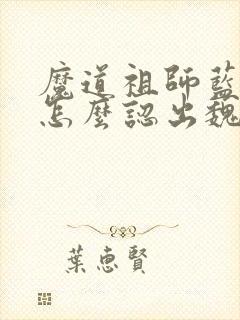 魔道祖師藍
怎麼認出魏
葉惠賢